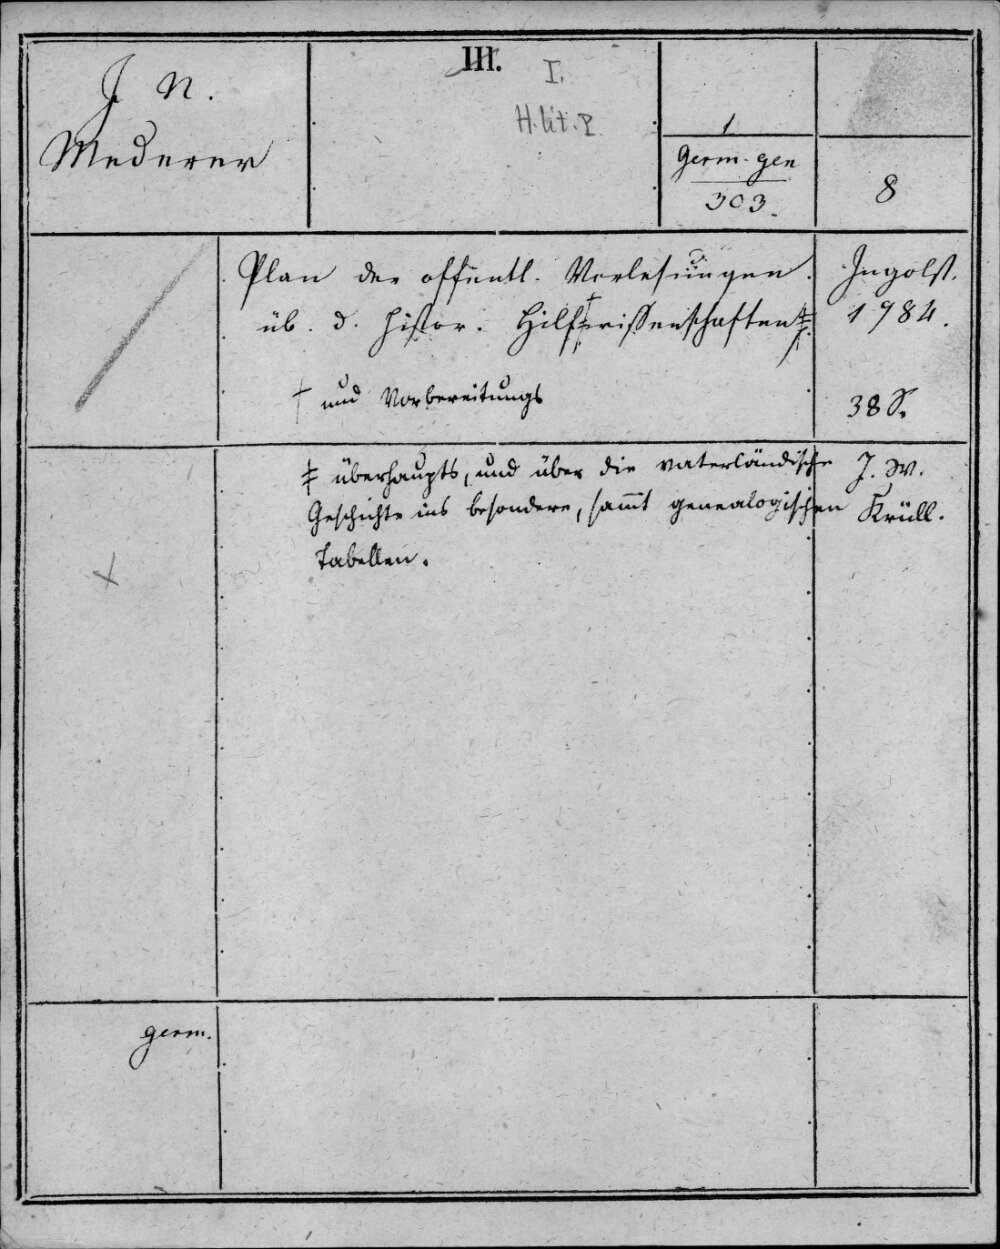 J N.
Mederer
III.
I.
H. lit. I
1
Germ. gen
303.
8
Plan der offentl. Vorlesungen
üb. d. histor. Hilfs†wissenschaften‡
† und Vorbereitungs
Ingolst.
1784.
38 S.
‡ überhaupts, und über die vaterländische
Geschichte ins besondere, sam̄t genealogischen
Tabellen.
J. W.
Krüll.
germ.